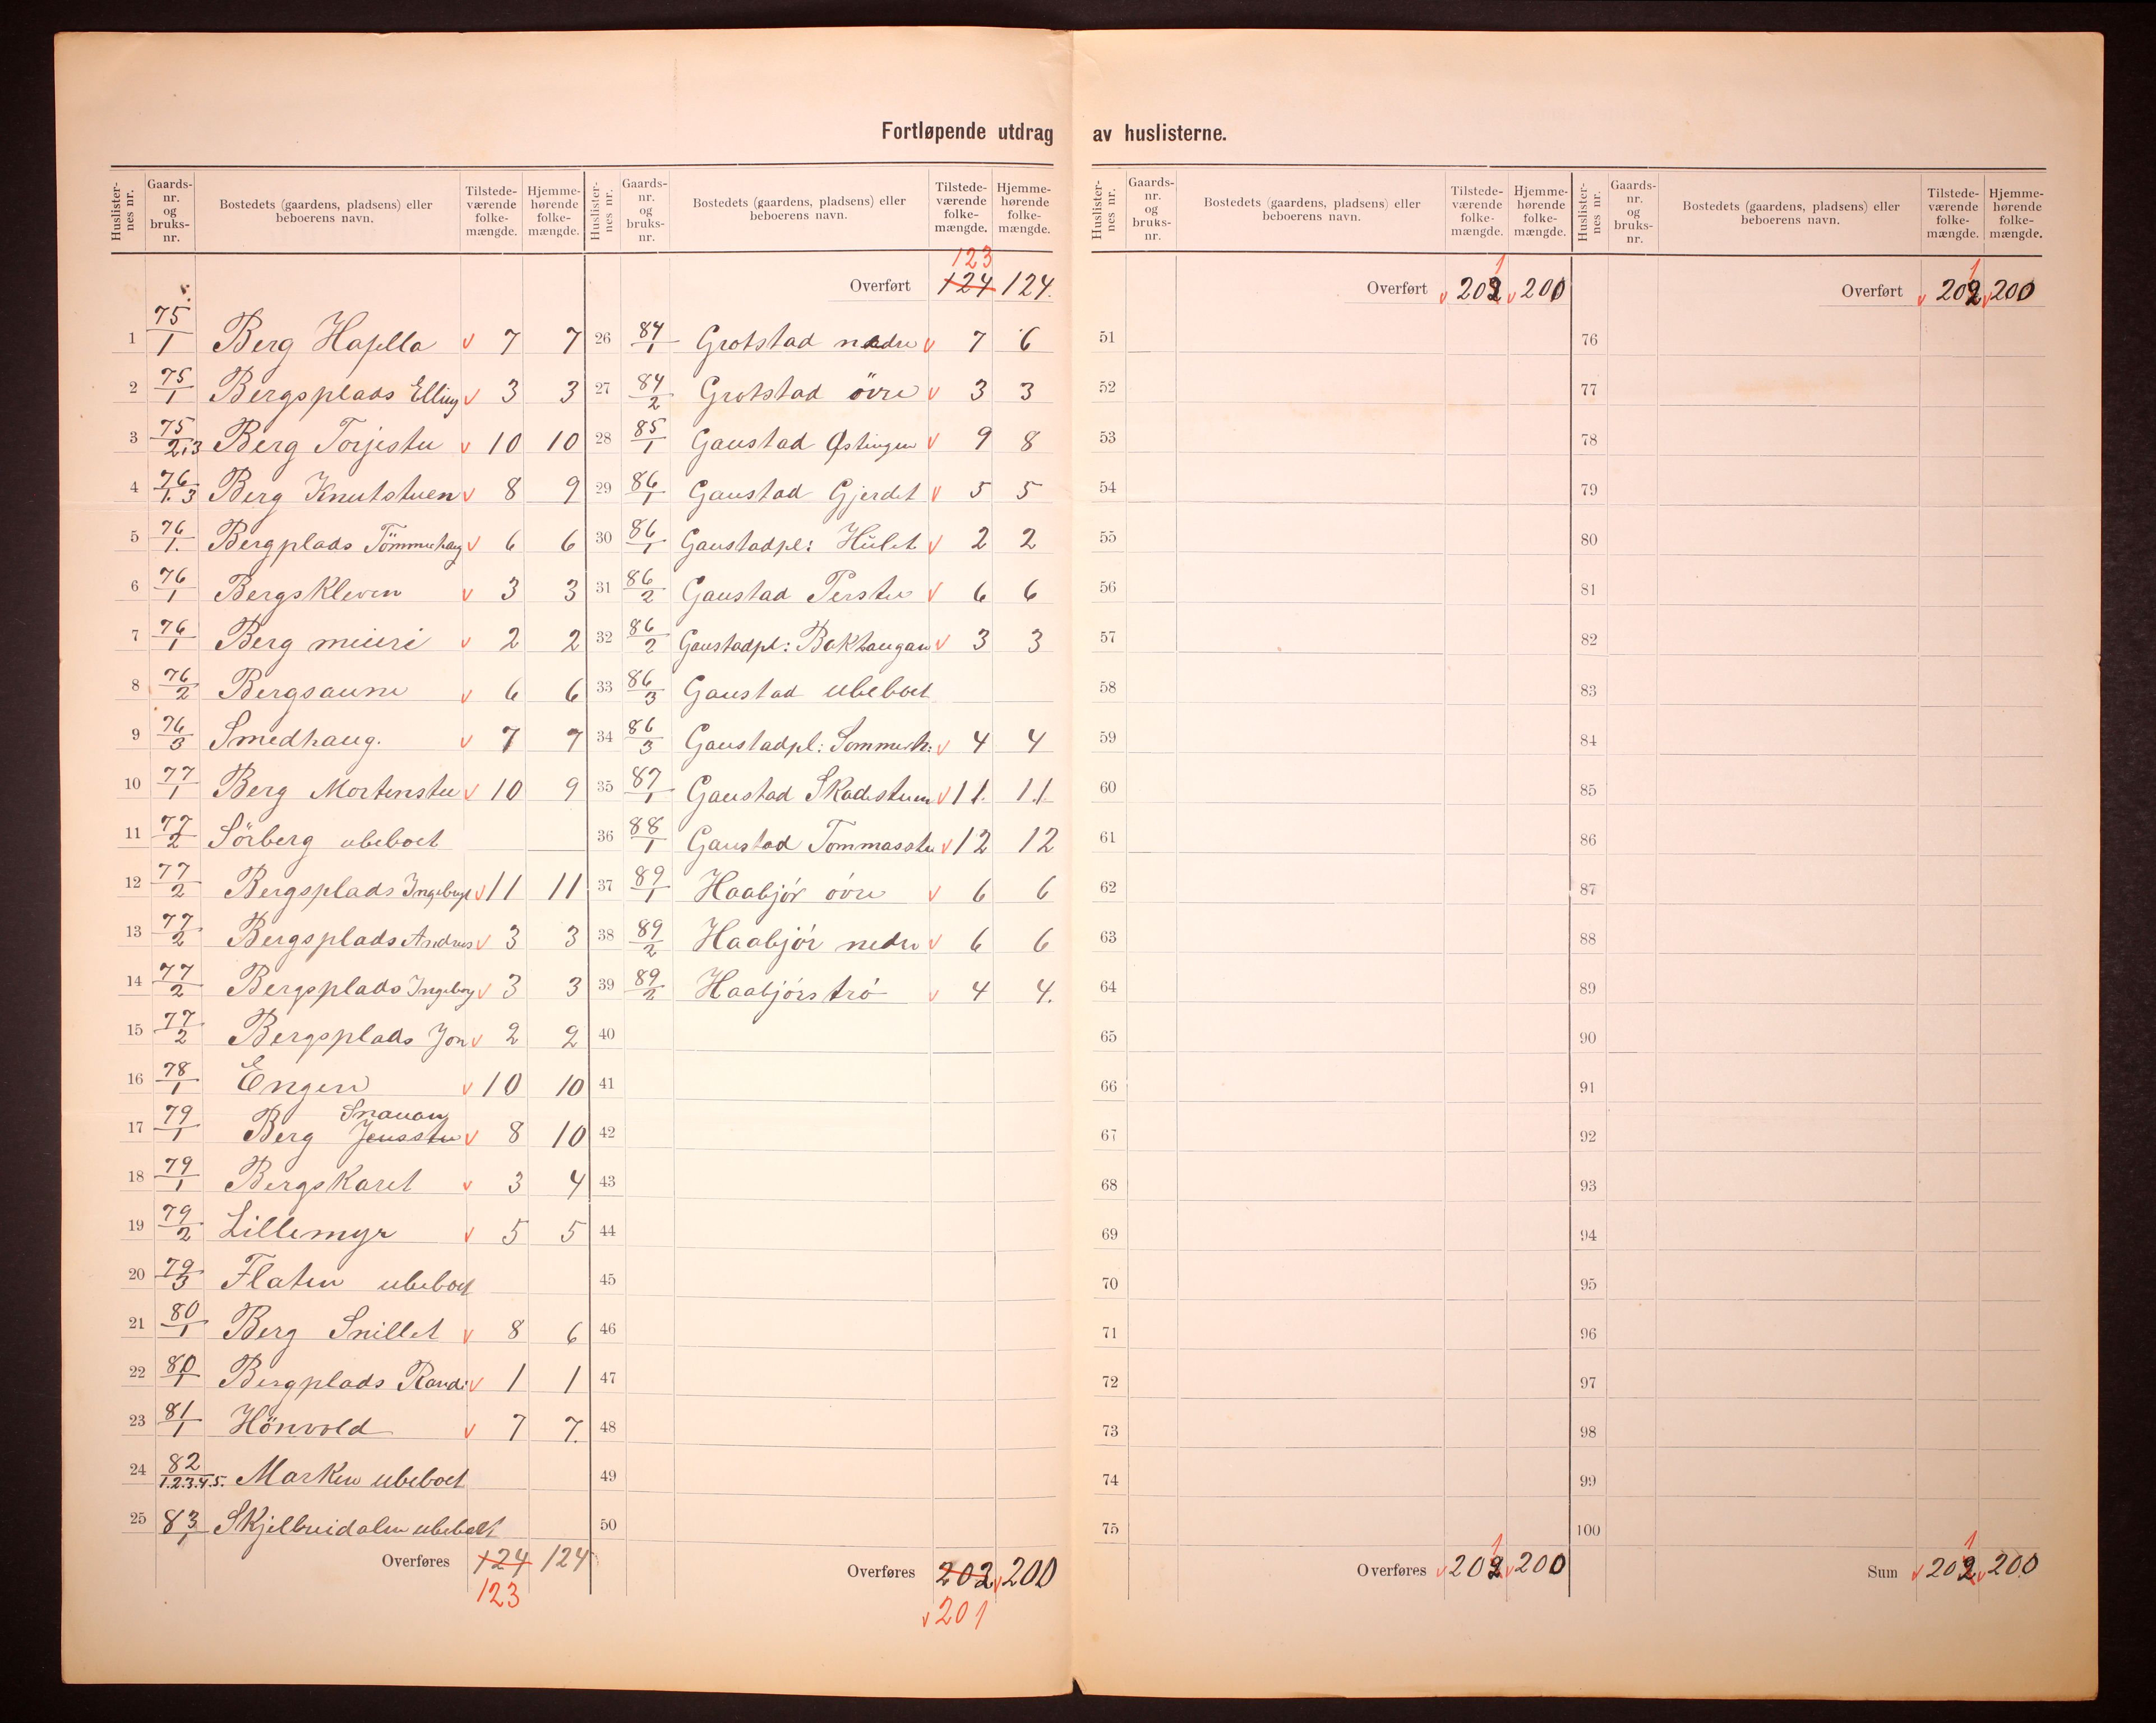 Fortløpende utdrag av huslisterne.
Huslisternes nr. Gaards-nr. og bruks-nr. Bostedets (gaardens, pladsens) eller beboerens navn. Tilstedeværende folkemængde. Hjemmehørende folkemængde.
1 75/1 Berg Haflla v 7 7
2 75/1 Bergsplads Elling v 3 3
3 75/2.3 Berg Torjestu v 10 10
4 76/1.3 Berg Knutstuen v 8 9
5 76/1. Bergplads Tömmerhaug v 6 6
6 76/1 Bergskleven v 3 3
7 76/1 Berg meieri v 2 2
8 76/2 Bergsaune v 6 6
9 76/3 Smedhaug. v 7 7
10 77/1 Berg Mortenstu v 10 9
11 77/2 Sörberg ubeboet
12 77/2 Bergsplads Ingebrigt v 11 11
13 77/2 Bergsplads Andreas v 3 3
14 77/2 Bergsplads Ingeborg v 3 3
15 77/2 Bergsplads Jon v 2 2
16 78/1 Engen v 10 10
17 79/1 Berg Jensstu Snauan v 8 10
18 79/1 Bergskaret v 3 4
19 79/2 Lillemyr v 5 5
20 79/3 Flaten ubeboet
21 80/1 Berg Snillet v 8 6
22 80/1 Bergplads Randi v 1 1
23 81/1 Hönvold v 7 7.
24 82/1.2.3.4.5. Marken ubeboet
25 83/1 Skjelbreidalen ubeboet
Overføres 124 124
123
Huslisternes nr. Gaards-nr. og bruks-nr. Bostedets (gaardens, pladsens) eller beboerens navn. Tilstedeværende folkemængde. Hjemmehørende folkemængde.
123
Overført 124 124.
26 84/1 Grotstad nedre v 7 6
27 84/2 Grotstad övre v 3 3
28 85/1 Gaustad Østingen v 9 8
29 86/1 Gaustad Gjerdet v 5 5
30 86/1 Gaustadpl: Hulet v 2 2
31 86/2 Gaustad Perstu v 6 6
32 86/2 Gaustadpl: Bakhaugan v 3 3
33 86/3 Gaustad ubeboet
34 86/3 Gaustadpl: Sommerh: v 4 4
35 87/1 Gaustad Skadestuen v 11. 11.
36 88/1 Gaustad Tommasstu v 12 12
37 89/1 Haabjör övre v 6 6
38 89/2 Haabjör nedre v 6 6
39 89/2 Haabjörströ v 4 4.
40
41
42
43
44
45
46
47
48
49
50
Overføres 202 v 200
v 201
Huslisternes nr. Gaards-nr. og bruks-nr. Bostedets (gaardens, pladsens) eller beboerens navn. Tilstedeværende folkemængde. Hjemmehørende folkemængde.
1
Overført v 202 v 200
51
52
53
54
55
56
57
58
59
60
61
62
63
64
65
66
67
68
69
70
71
72
73
74
75
1
Overføres v 202 v 200
Huslisternes nr. Gaards-nr. og bruks-nr. Bostedets (gaardens, pladsens) eller beboerens navn. Tilstedeværende folkemængde. Hjemmehørende folkemængde.
1
Overført v 202 v 200
76
77
78
79
80
81
82
83
84
85
86
87
88
89
90
91
92
93
94
95
96
97
98
99
100
1
Sum v 202 v 200